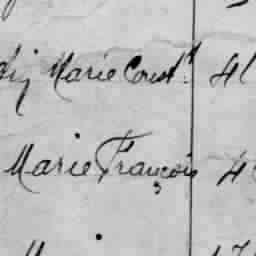 Marie Const.t 4
Marie François 4